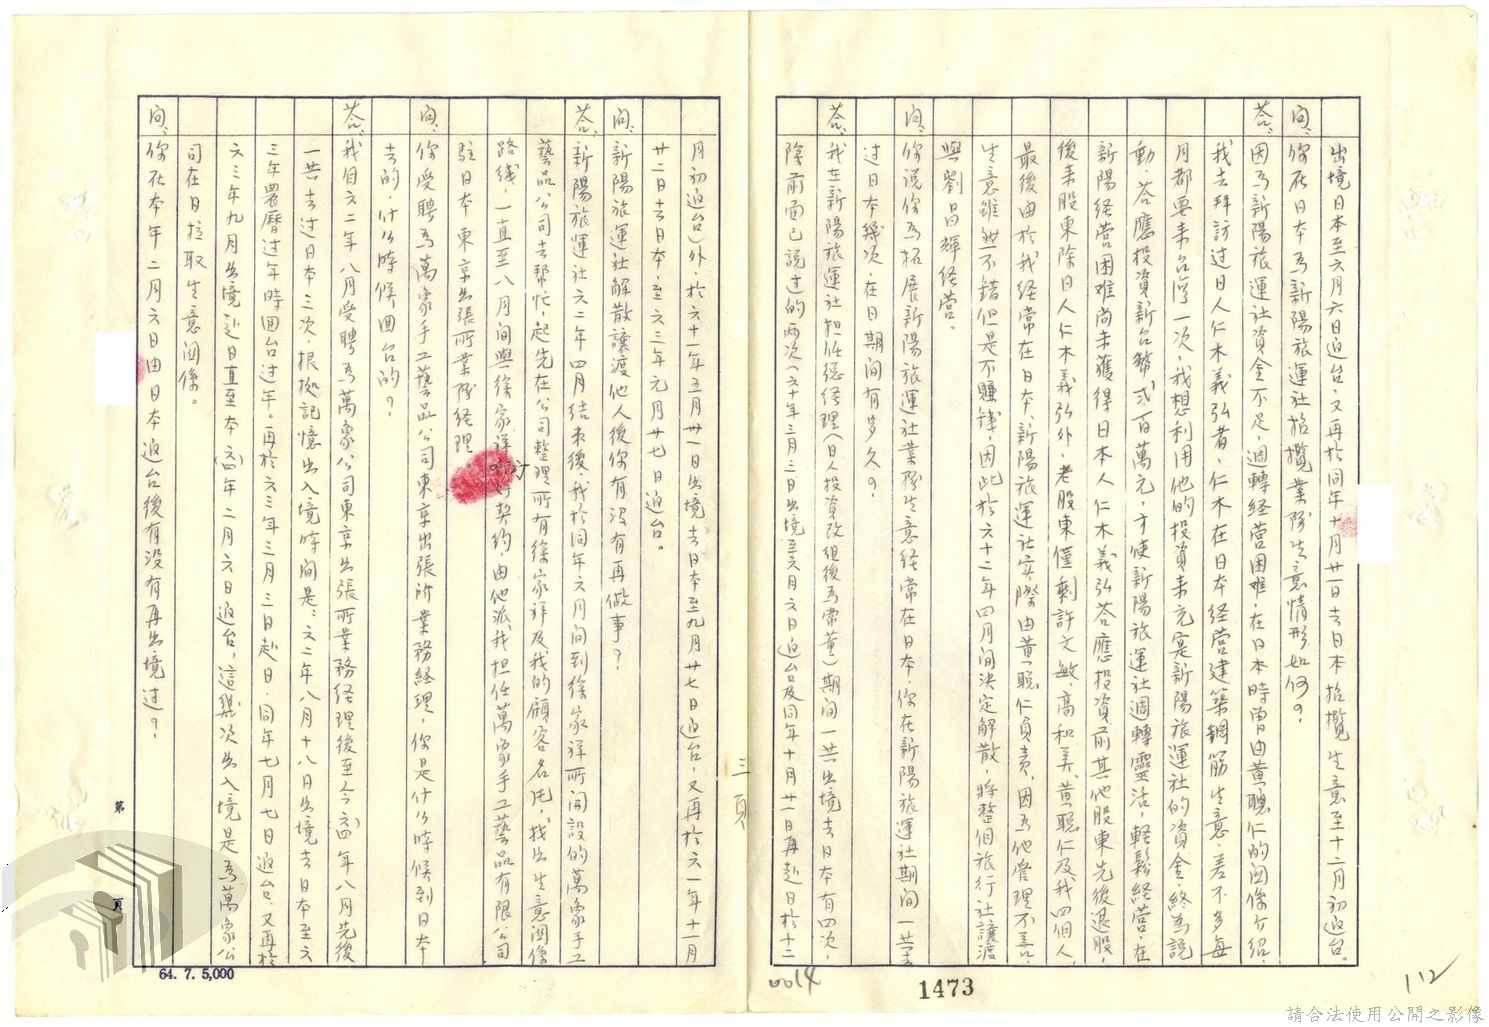 出境日本至六月六日返台，又再於同年十月廿一日去日本招攬生意至十二月初返台。
問、你在日本為新陽旅運社招攬業務生意情形如何？
答、因為新陽旅運社資金不足，週轉經營困难，在日本時曾由黃聰仁的関係介紹，
我去拜訪过日人仁木義弘者，仁木在日本經营建築鋼筋生意，差不多每
月都要来台湾一次，我想利用他的投資来充寔新陽旅運社的資金，終為說
動，答應投資新台幣弍百萬元，才使新陽旅運社週轉靈活，輕鬆經营，在
新陽経营困难尚未獲得日本人仁木義弘答應投資前其他股東先後退股，
後来股東除日人仁木義弘外，老股東僅剩許文敏、高和美、黃聰仁及我四個人，
最後由於我経常在日本，新陽旅運社实際由黃聰仁負責，因為他管理不善，
生意雖然不錯但是不賺錢，因此於六十二年四月間決定解散，將整個旅行社讓渡
與劉昌輝経营。
問、你說你為拓展新陽旅運社業務生意経常在日本，你在新陽旅運社期间一共去
过日本幾次，在日期间有多久？
答、我在新陽旅運社担任總経理（日人投資改組後為常董）期間一共出境去日本有四次，
除前面已說过的两次（六十年三月三日出境至六月六日返台及同年十月廿一日再赴日於十二
月初返台）外，於六十一年五月卅一日出境去日本至九月廿七日返台，又再於六一年十一月
廿二日去日本，至六三年元月廿七日返台。
問、新陽旅運社解散讓渡他人後你有没有再做事？
答、新陽旅運社六二年四月結束後，我於同年六月间到徐家祥所開設的萬象手工
藝品公司去帮忙，起先在公司整理所有徐家祥及我的顧客名片，找出生意関係
路线，一直至八月间與徐家祥訂契約，由他派我担任萬象手工藝品有限公司
駐日本東京出張所業務経理
問、你受聘為萬象手工藝品公司東京出張所業務経理，你是什么時候到日本
去的，什么時候回台的？
答、我自六二年八月受聘為萬象公司東京出張所業務経理後至今（六四）年八月先後
一共去过日本三次，根据記憶出入境時间是：六二年八月十八日出境去日本至六
三年農曆过年時回台过年。再於六三年三月三日赴日，同年七月七日返台，又再於
六三年九月出境赴日直至本（六四）年二月六日返台，這幾次出入境是為萬象公
司在日拉取生意関係。
問、你在本年二月六日由日本返台後有没有再出境过？
三頁
第 頁
64. 7. 5,000
0014
1473
112
請合法使用公開之影像